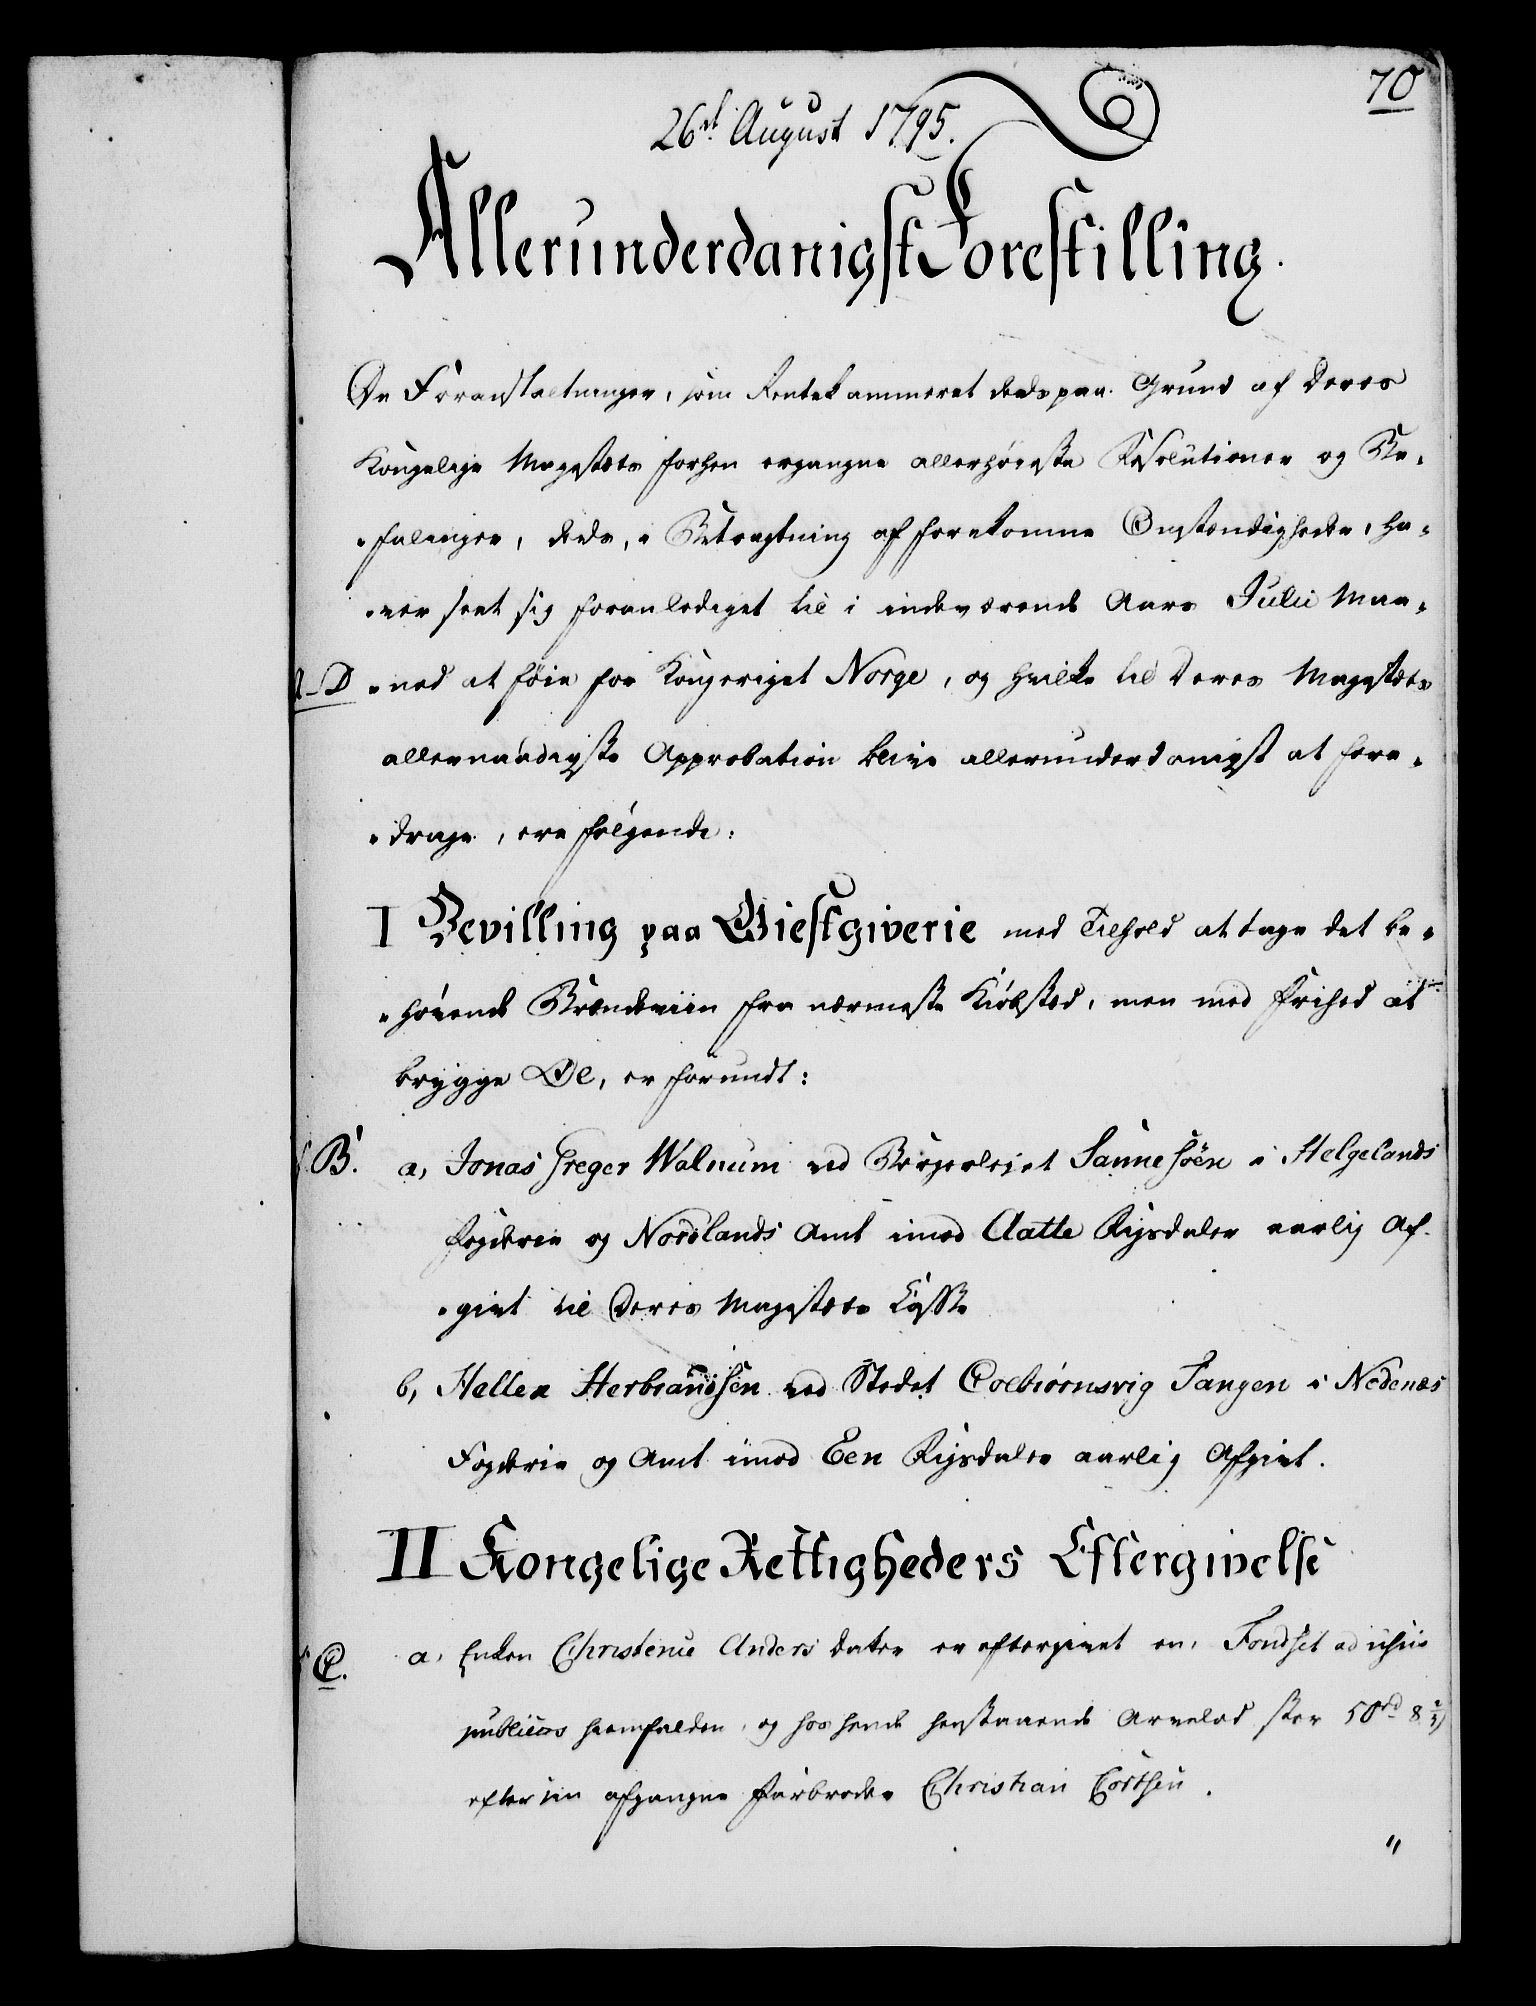 70
26de August 1795.
Allerunderdanigst Forestilling.
De Foranstaltninger, som Rentekammeret deels paa Grund af Deres
Kongelige Majestæts forhen ergangne allerhøieste Resolutioner og Be-
-falinger, deels, i Betragtning af forekomne Omstændigheder, ha-
-ver seet sig foranlediget til i indeværende Aars Julii Maa-
-ned at føie for Kongeriget Norge, og hvilke til Deres Majestæts
allernaadigste Approbation blive allerunderdanigst at fore-
-drage, ere følgende:
I Bevilling paa Giestgiverie med Tilhold at tage det be-
-høvende Brændeviin fra nærmeste Kiøbsted, men med Frihed at
brygge Øl, er forundt:
B. a, Jonas Greger Walnum ved Borgerleiet Sannesøen i Helgelands
Fogderie og Nordlands Amt imod Aatte Rigsdaler aarlig Af-
-givt til Deres Majestæts Casse
b, Hellex Herbrandsen ved Stedet Colbiørnsvig Tangen i Nedenæs
Fogderie og Amt imod Een Rigsdaler aarlig Afgivt.
II Kongelige Rettigheders Eftergivelse
C. a, Enken Christense Anders datter er eftergivet en, Fondset ad usus
publicos hiemfalden, og hos hende henstaaende Arvelod stor 50rd 8
efter sin afgangne Farbroder Christian Cortsen.
"